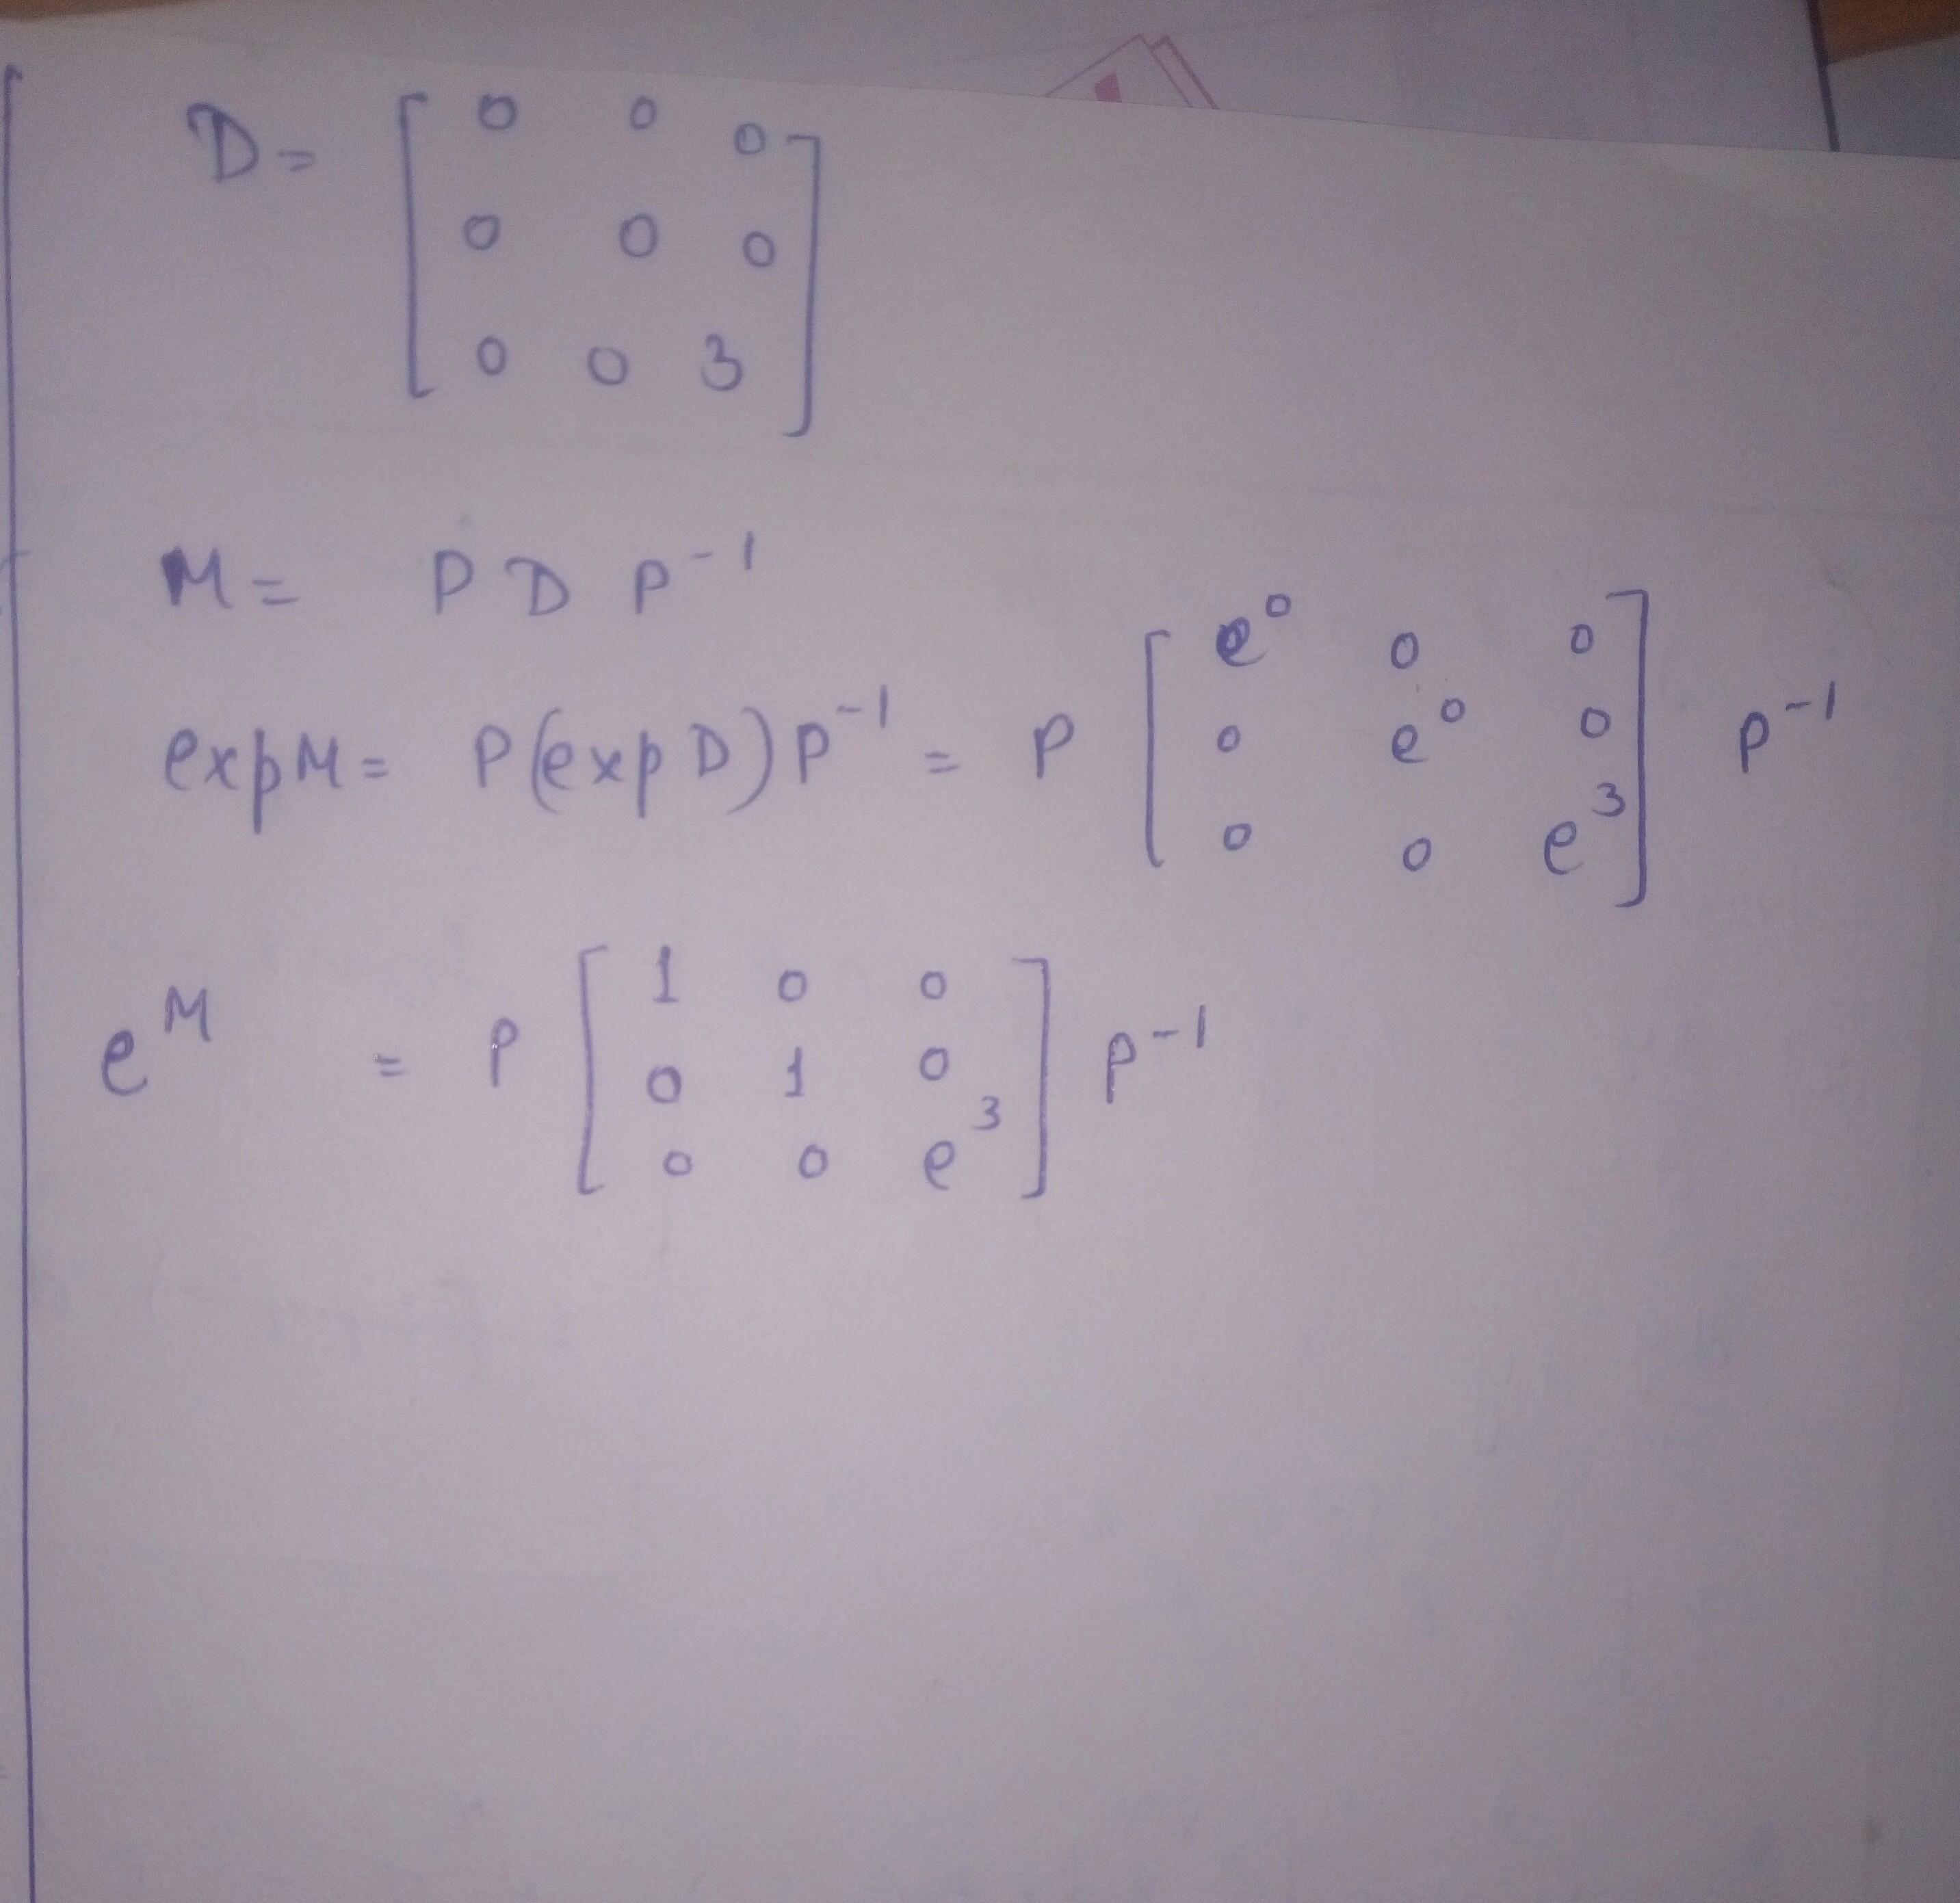 D = [ 0 0 0
0 0 0
0 0 3 ]
M = P D P⁻¹
exp M = P(exp D)P⁻¹ = P [ e⁰ 0 0
0 e⁰ 0
0 0 e³ ] P⁻¹
eᴹ = P [ 1 0 0
0 1 0
0 0 e³ ] P⁻¹